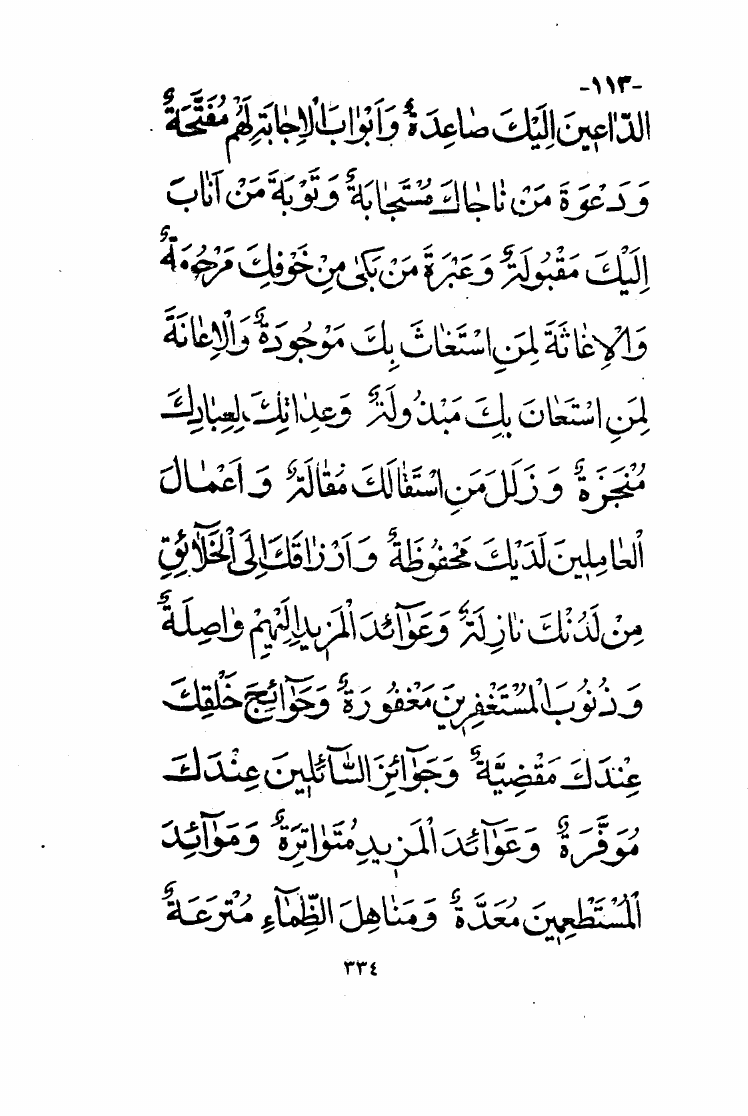 -١١٣-
الدّاعينَ إِلَيْكَ صاعِدَةٌ وَأَبْوابَ الْإِجابَةِ لَهُمْ مُفَتَّحَةٌ
وَدَعْوَةَ مَنْ ناجاكَ مُسْتَجابَةٌ وَتَوْبَةَ مَنْ أَنابَ
إِلَيْكَ مَقْبُولَةٌ وَعَبْرَةَ مَنْ بَكىٰ مِنْ خَوْفِكَ مَرْحُومَةٌ
وَالْإِغاثَةَ لِمَنِ اسْتَغاثَ بِكَ مَوْجُودَةٌ وَالْإِعانَةَ
لِمَنِ اسْتَعانَ بِكَ مَبْذُولَةٌ وَعِداتِكَ لِعِبادِكَ
مُنْجَزَةٌ وَزَلَلَ مَنِ اسْتَقالَكَ مُقالَةٌ وَأَعْمالَ
الْعامِلينَ لَدَيْكَ مَحْفُوظَةٌ وَأَرْزاقَكَ إِلَى الْخَلآئِقِ
مِنْ لَدُنْكَ نازِلَةٌ وَعَوآئِدَ الْمَزيدِ إِلَيْهِمْ واصِلَةٌ
وَذُنُوبَ الْمُسْتَغْفِرينَ مَغْفُورَةٌ وَحَوآئِجَ خَلْقِكَ
عِنْدَكَ مَقْضِيَّةٌ وَجَوآئِزَ السّآئِلينَ عِنْدَكَ
مُوَفَّرَةٌ وَعَوآئِدَ الْمَزيدِ مُتَواتِرَةٌ وَمَوآئِدَ
الْمُسْتَطْعِمينَ مُعَدَّةٌ وَمَناهِلَ الظِّمآءِ مُتْرَعَةٌ
٣٣٤